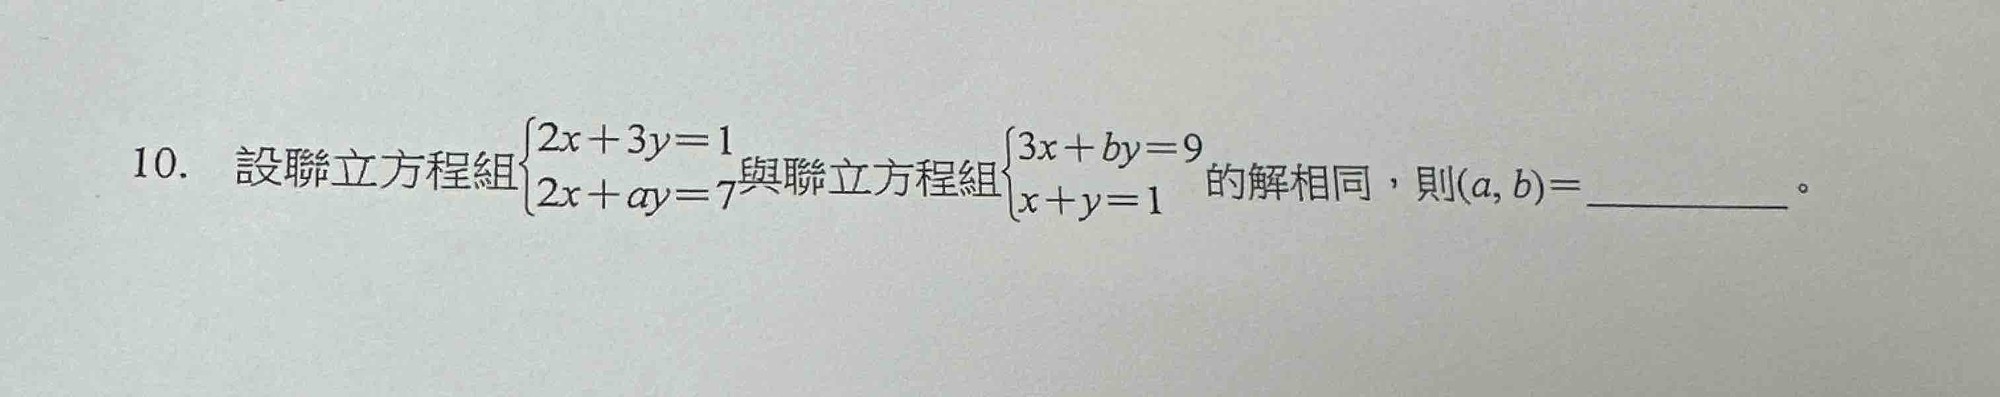 10. 設聯立方程組{2x+3y=1 2x+ay=7與聯立方程組{3x+by=9 x+y=1的解相同，則(a, b)=__________。